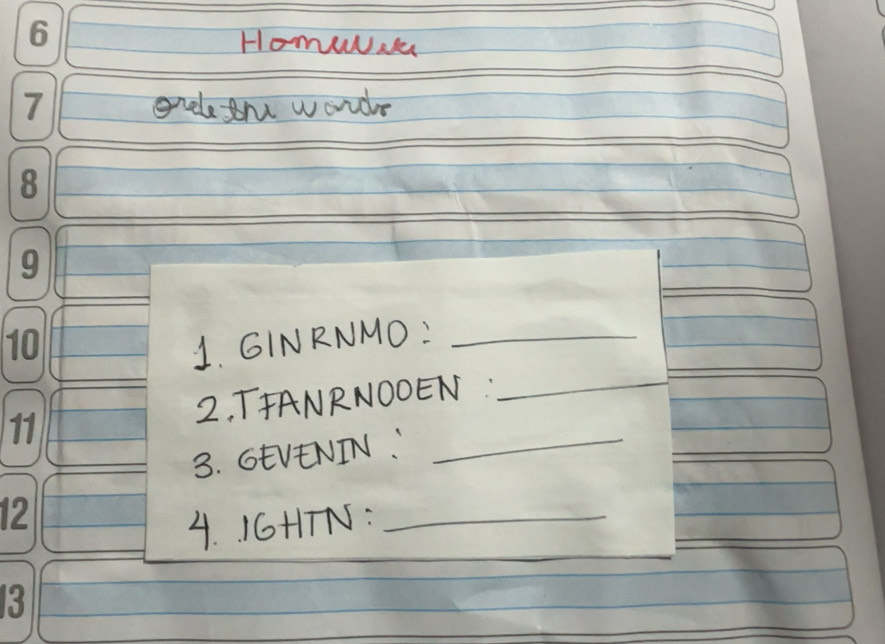 6 Homework
7 orde the words
8
9
10
11
12
13
1. GINRNMO: ________
2. TFANRNOOEN : ________
3. GEVENIN : ________
4. IGHTN: ________